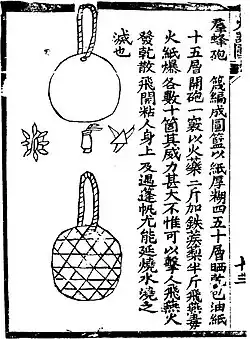 羣蜂砲　篾編成圓籃以紙厚糊四五十層晒乾包油紙
十五層開砲一竅以火藥二斤加鉄蒺梨半斤飛燕毒
火紙爆各數十箇其威力甚大不惟可以擊人飛燕火
發乾散飛開粘人身上及遇蓬帆尤能延燒水澆之
滅也
十三